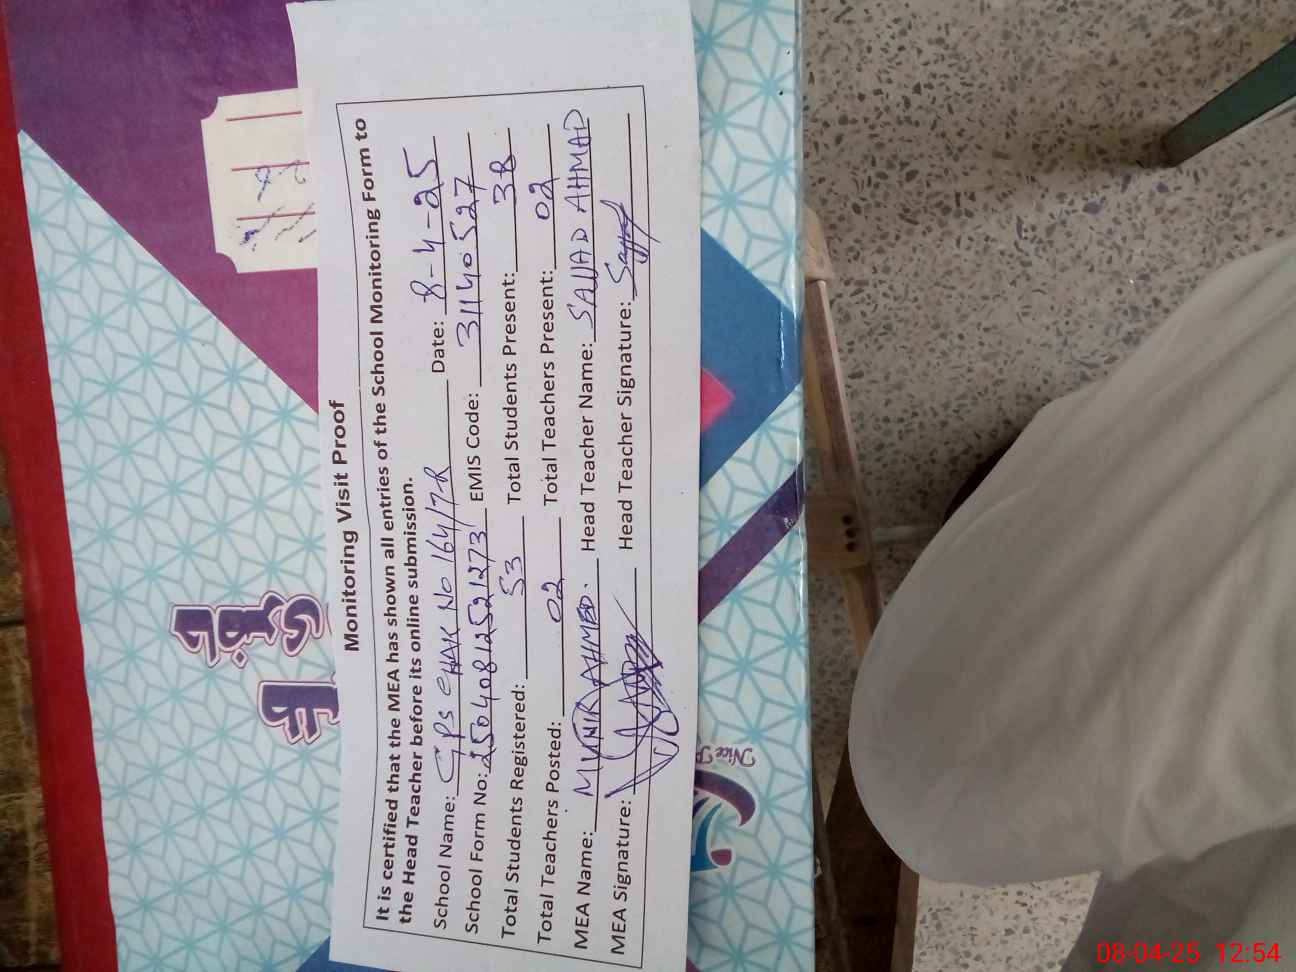 Monitoring Visit Proof
It is certified that the MEA has shown all entries of the School Monitoring Form to
the Head Teacher before its online submission.
School Name: GPS CHAK No 164/7-R Date: 8-4-25
School Form No: 25040812521273 EMIS Code: 31140527
Total Students Registered: 53 Total Students Present: 38
Total Teachers Posted: 02 Total Teachers Present: 02
MEA Name: MUNIR AHMED. Head Teacher Name: SAJJAD AHMAD
MEA Signature: Head Teacher Signature:
Nice
08-04-25 12:54